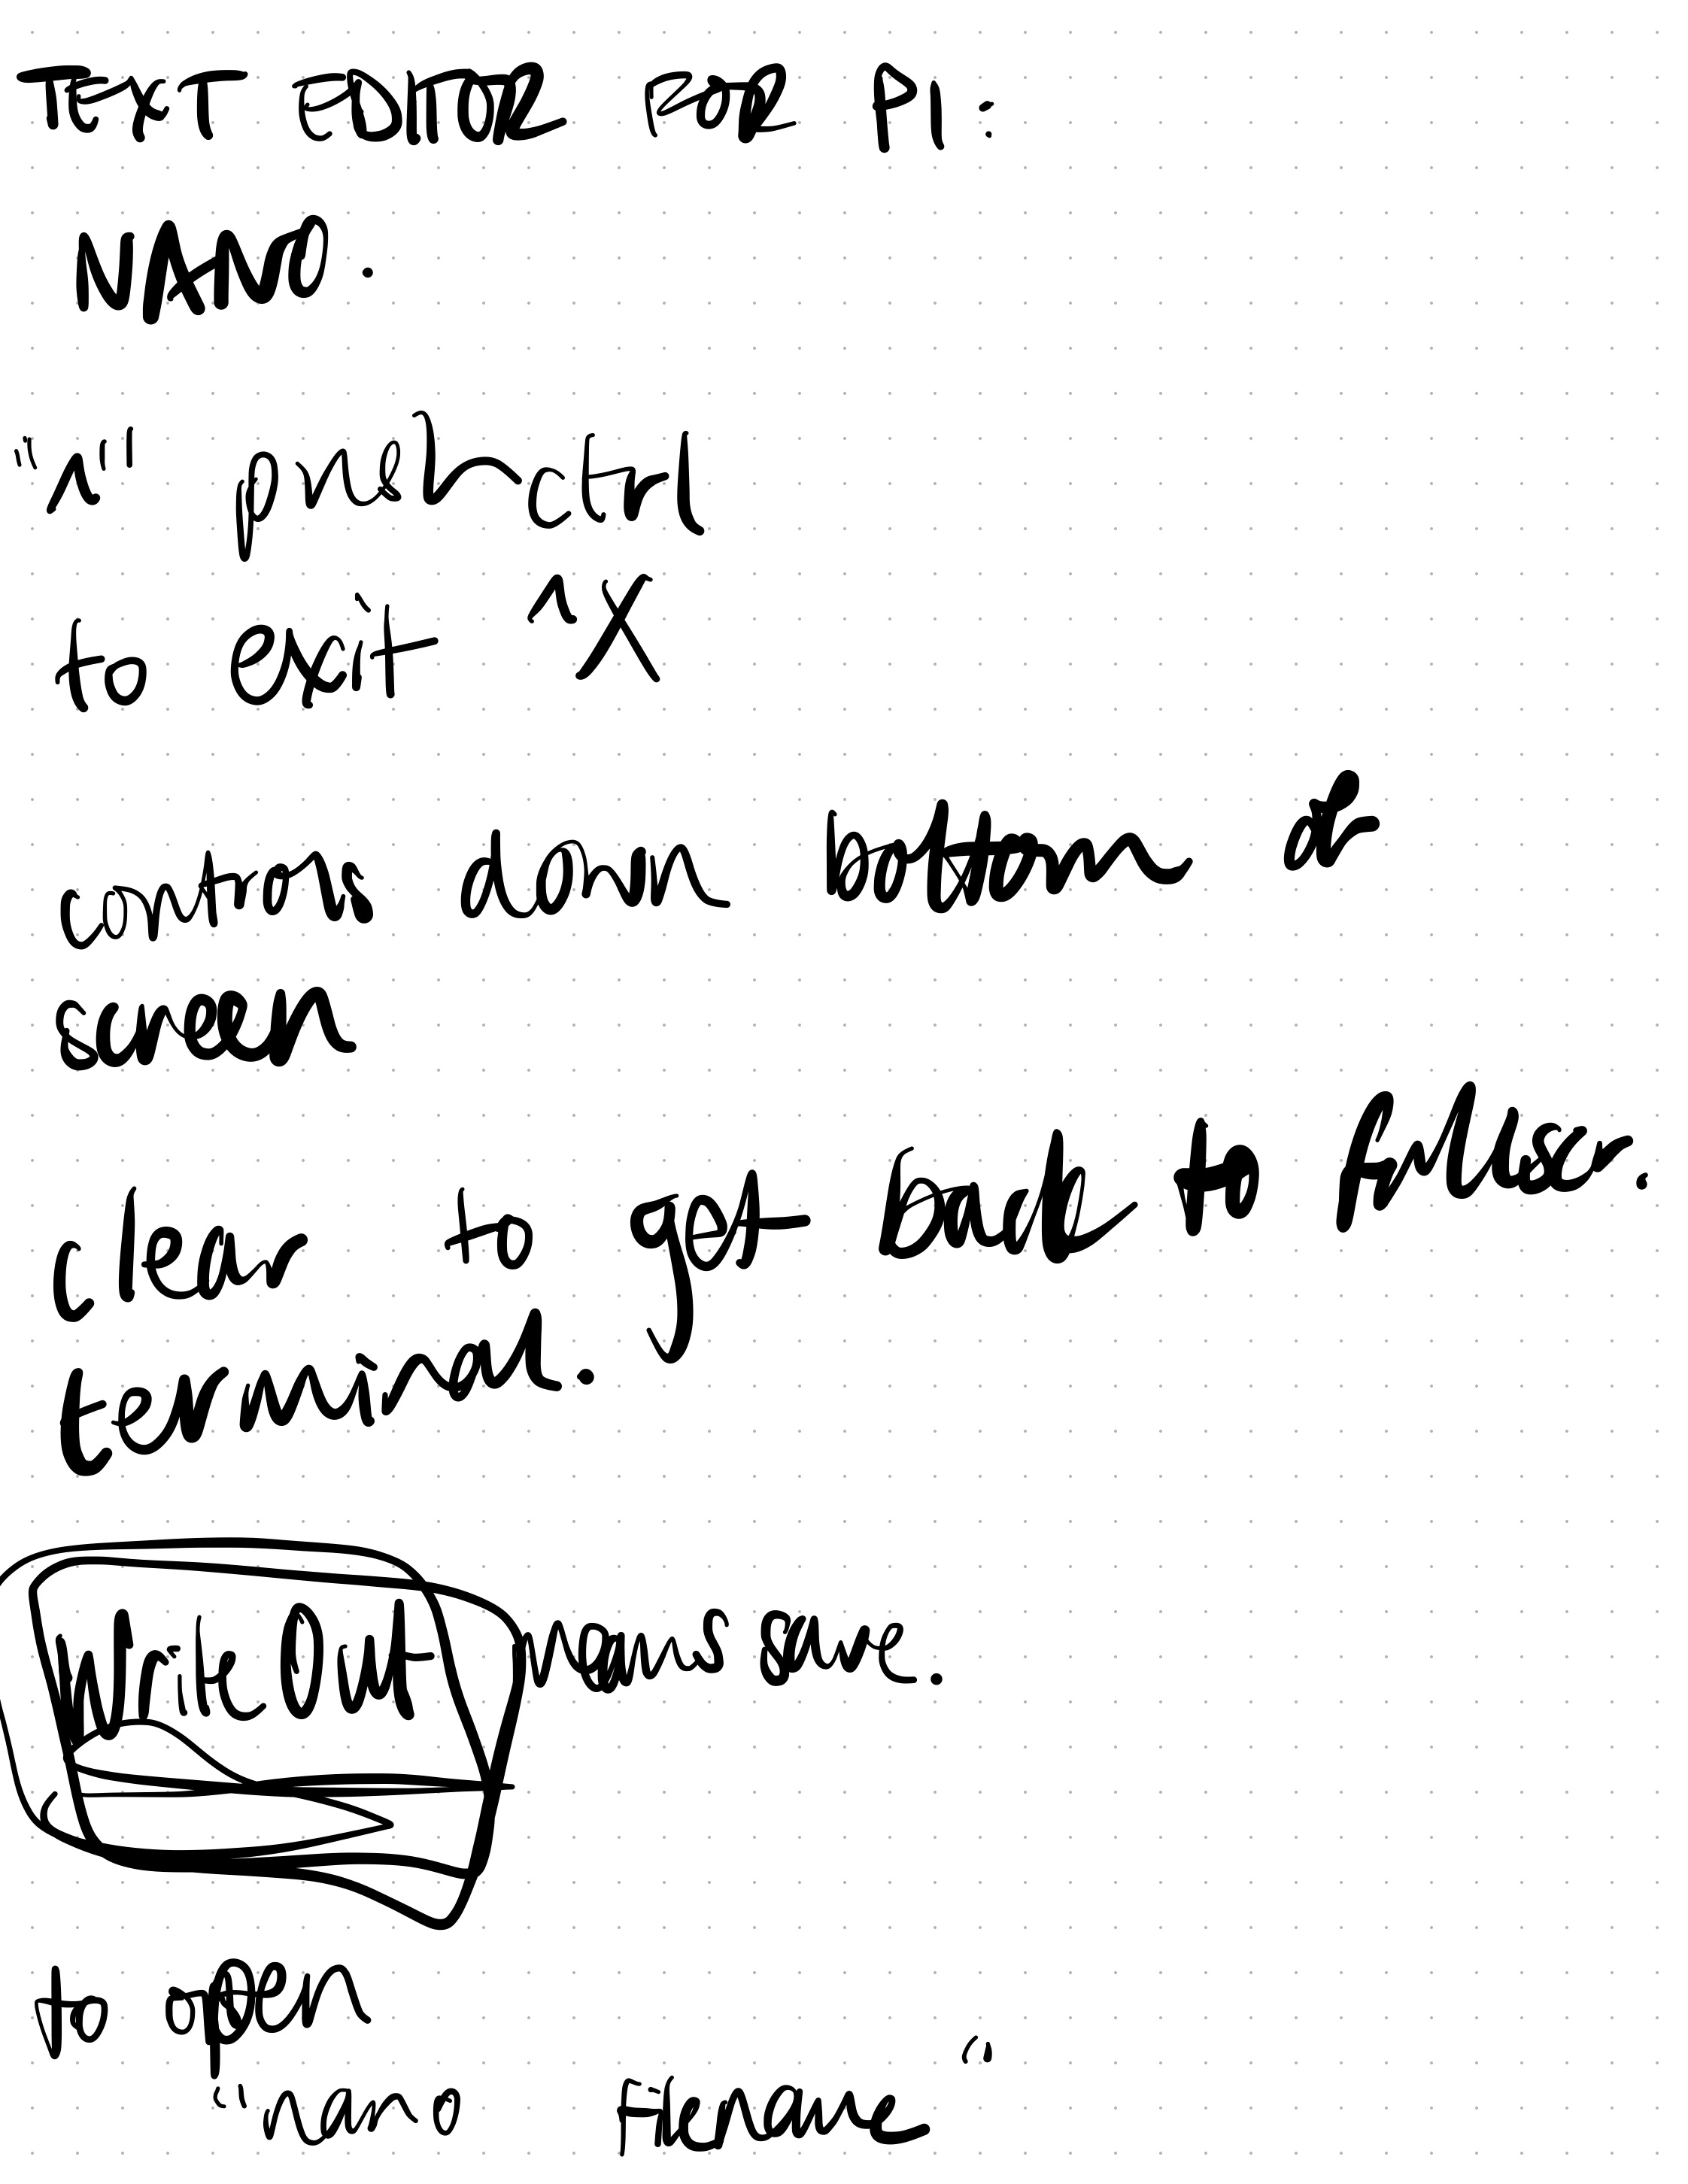 TEXT EDITOR FOR PI:
NANO.
"^" push ctrl
to exit ^X
controls down bottom of
screen
clear to get back to fullscr.
terminal.
Write Out means save.
to open
"nano Filename"